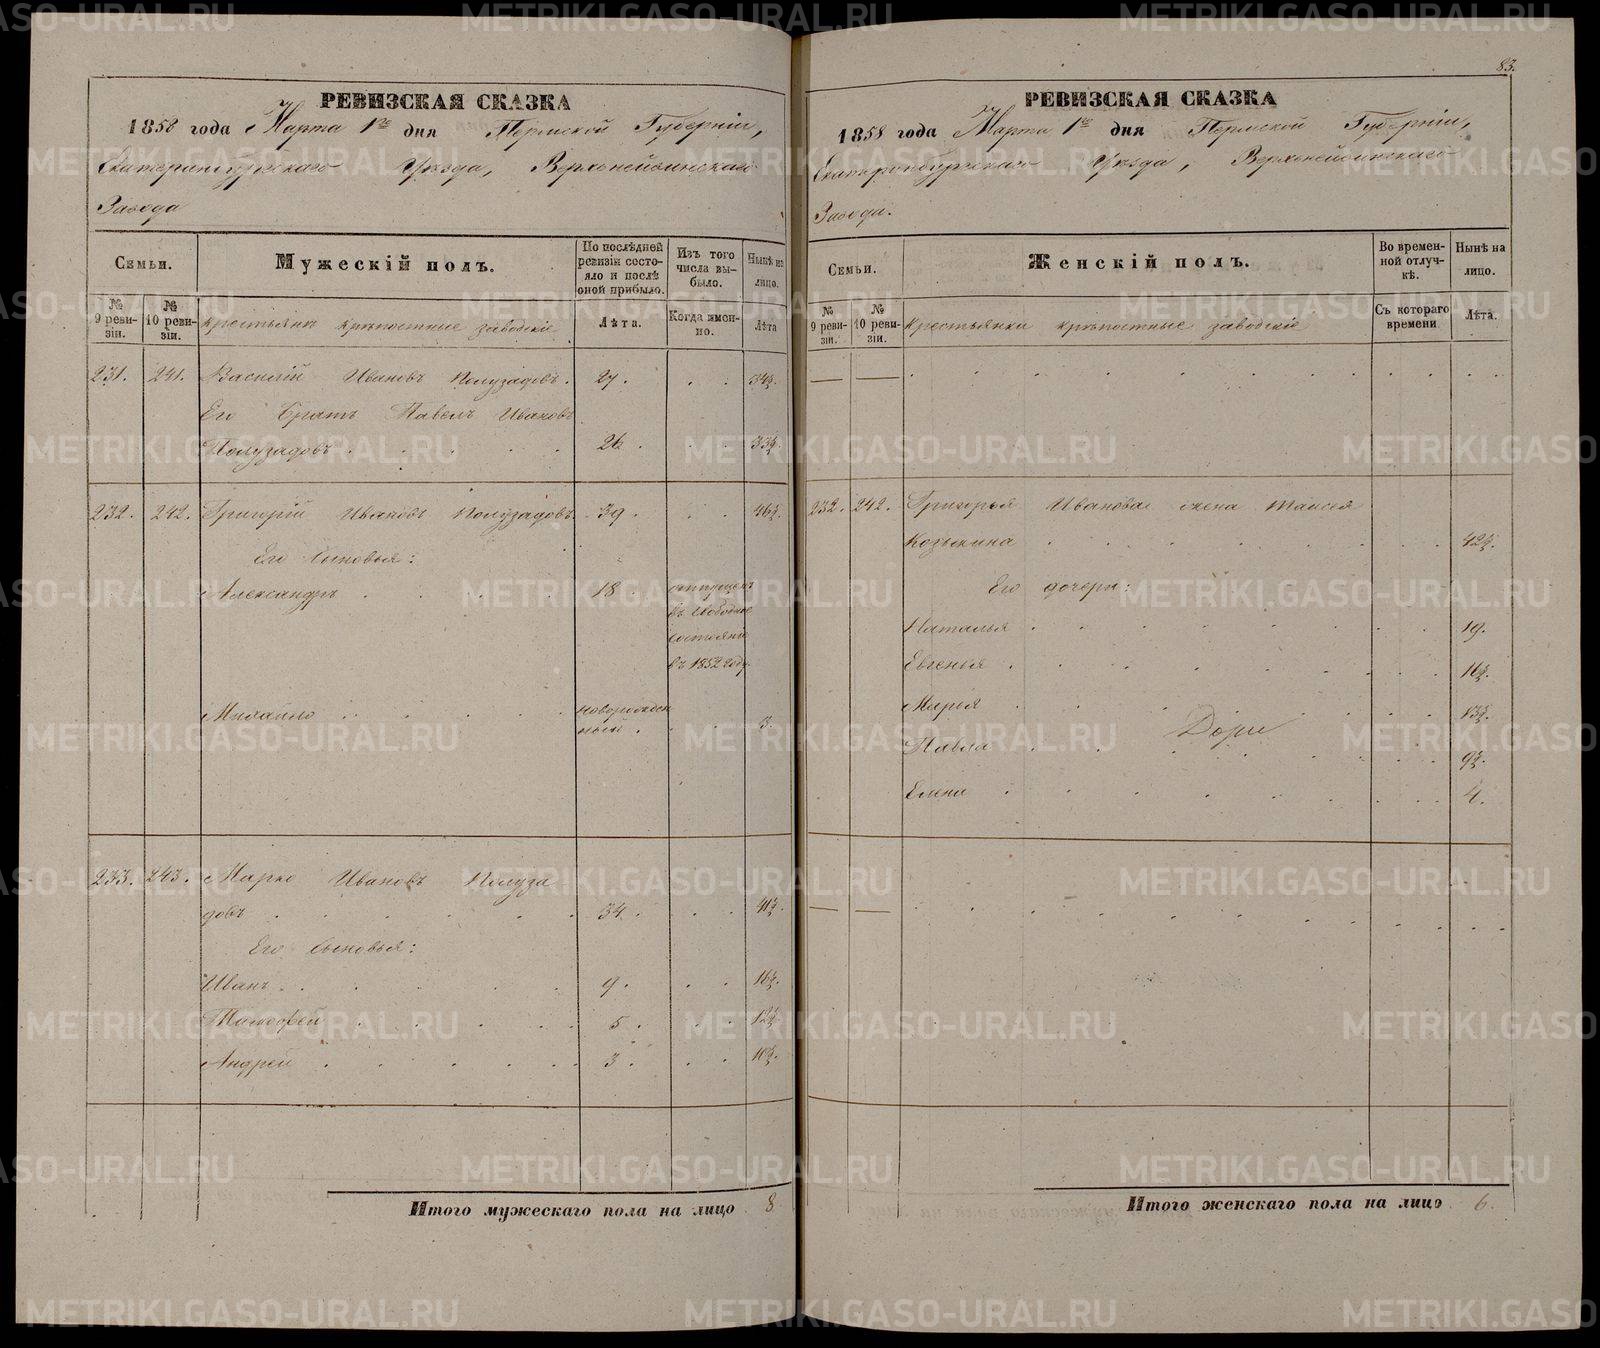 83.
РЕВИЗСКАЯ СКАЗКА
1858 года Марта 1го дня Пермской Губерніи,
Екатеринбургскаго Уѣзда, Верхнейвинскаго
Завода
Семьи.
Мужескій полъ.
По послѣдней ревизіи состояло и послѣ оной прибыло.
Изъ того числа выбыло.
Нынѣ на лицо.
№ 9 ревизіи.
№ 10 ревизіи.
Крестьянъ крѣпостные заводскіе
Лѣта.
Когда именно.
Лѣта
231. 241. Василій Ивановъ Полузадовъ. 27. . . 34½.
Его Братъ Павелъ Ивановъ
Полузадовъ . . . . 26. . . 33½.
232. 242. Григорій Ивановъ Полузадовъ. 39. . . 46½.
Его Сыновья:
Александръ . . . . 18. отпущенъ
въ свободное
состояніе
въ 1852 году.
Михайло . . . . новорожден
ный. . . 3.
233. 243. Марко Ивановъ Полуза
довъ . . . . . 34. . . 41½.
Его Сыновья:
Иванъ . . . . 9. . . 16½.
Тимофей . . . . 5. . . 12½.
Андрей . . . . 3. . . 10½.
Итого мужескаго пола на лицо 8
РЕВИЗСКАЯ СКАЗКА
1858 года Марта 1го дня Пермской Губерніи,
Екатеринбургскаго Уѣзда, Верхнейвинскаго
Завода.
Семьи.
Женскій полъ.
Во временной отлучкѣ.
Нынѣ на лицо.
№ 9 ревизіи.
№ 10 ревизіи.
Крестьянки крѣпостные заводскіе
Съ котораго времени
Лѣта.
232. 242. Григорья Иванова жена Таисья
Козьмина . . . . . 42½.
Его дочери:
Наталья . . . . . 19.
Евгенья . . . . . 16½.
Марія . . . . . 13½.
Павла . . . . . 9½.
Елена . . . . . 4.
Итого женскаго пола на лицо 6.
METRIKI.GASO-URAL.RU